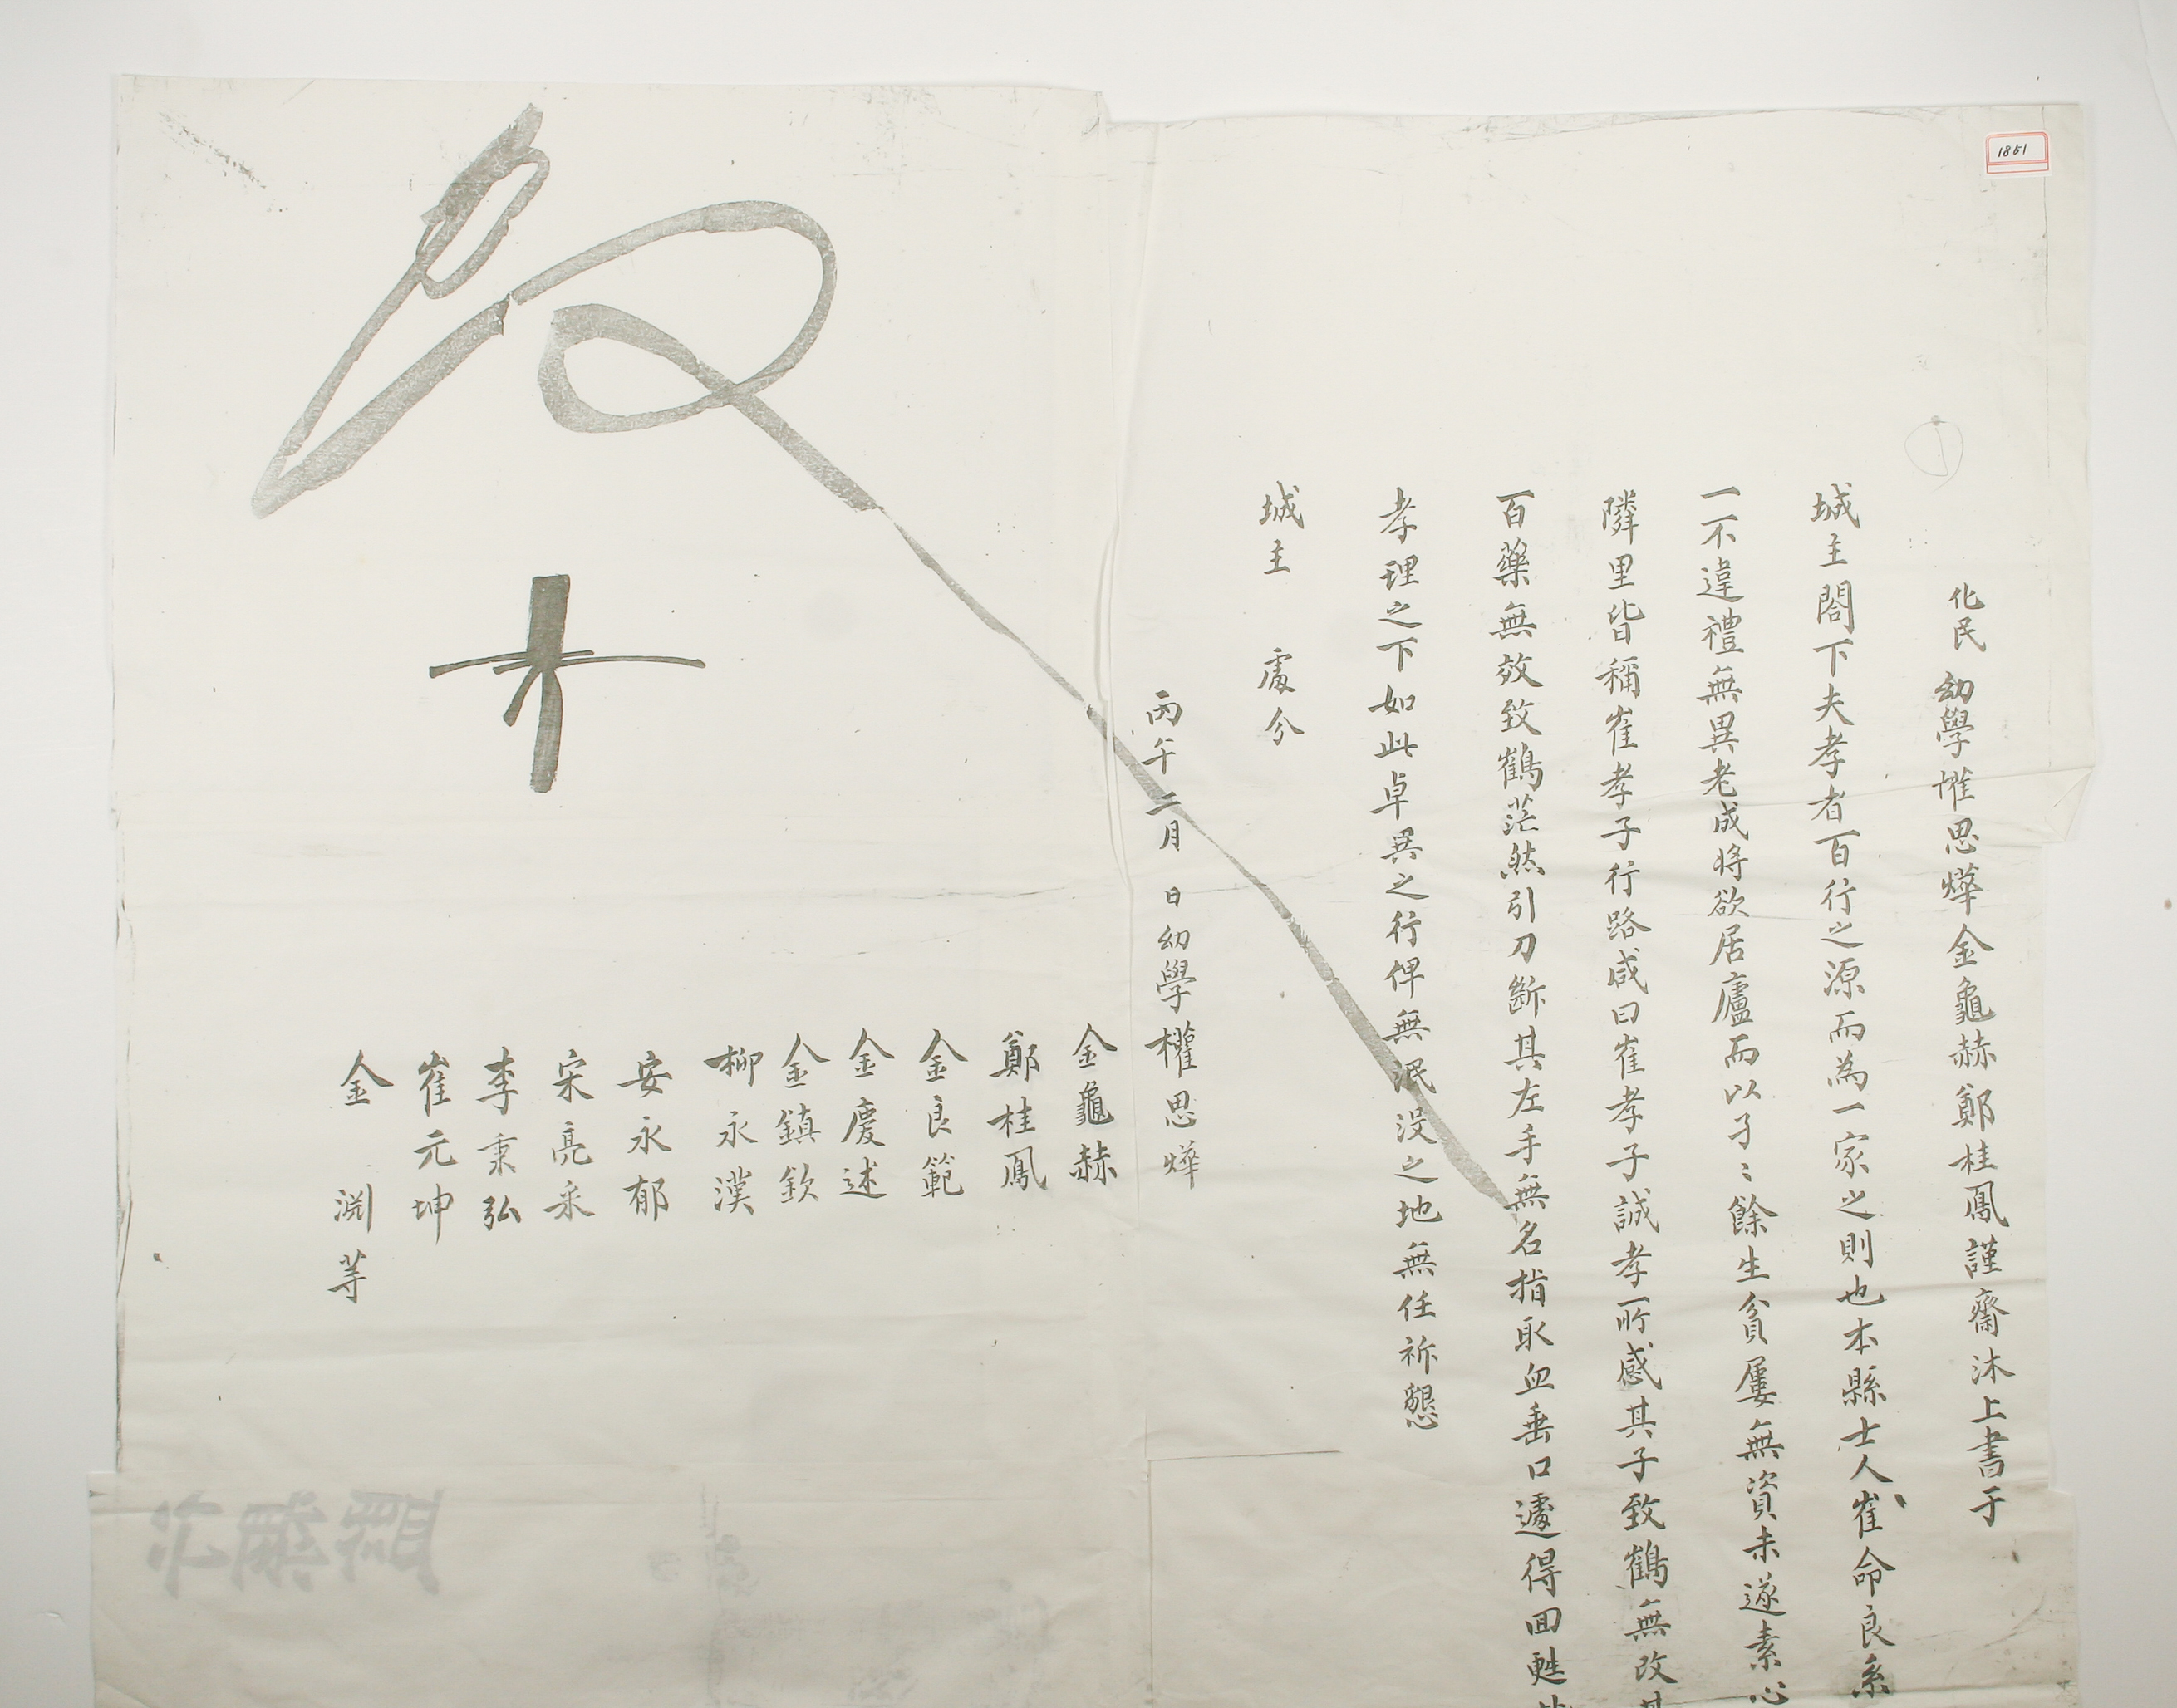 1861
化民 幼學 權思燁 金龜赫 鄭桂鳳 謹齋沐上書于
城主閤下夫孝者百行之源而為一家之則也本縣士人崔命良系
一不違禮無異老成將欲居廬而以孑〻餘生貧屢無資未遂素心
隣里皆稱崔孝子行路咸曰崔孝子誠孝所感其子致鶴無改其
百藥無效致鶴茫然引刀斷其左手無名指取血垂口遽得回甦
孝理之下如此卓異之行俾無泯沒之地無任祈懇
城主 處分
丙午二月 日幼學 權思燁
金龜赫
鄭桂鳳
金良範
金慶述
金鎮欽
柳永漢
安永郁
宋亮采
李秉弘
崔元坤
金 淵 等